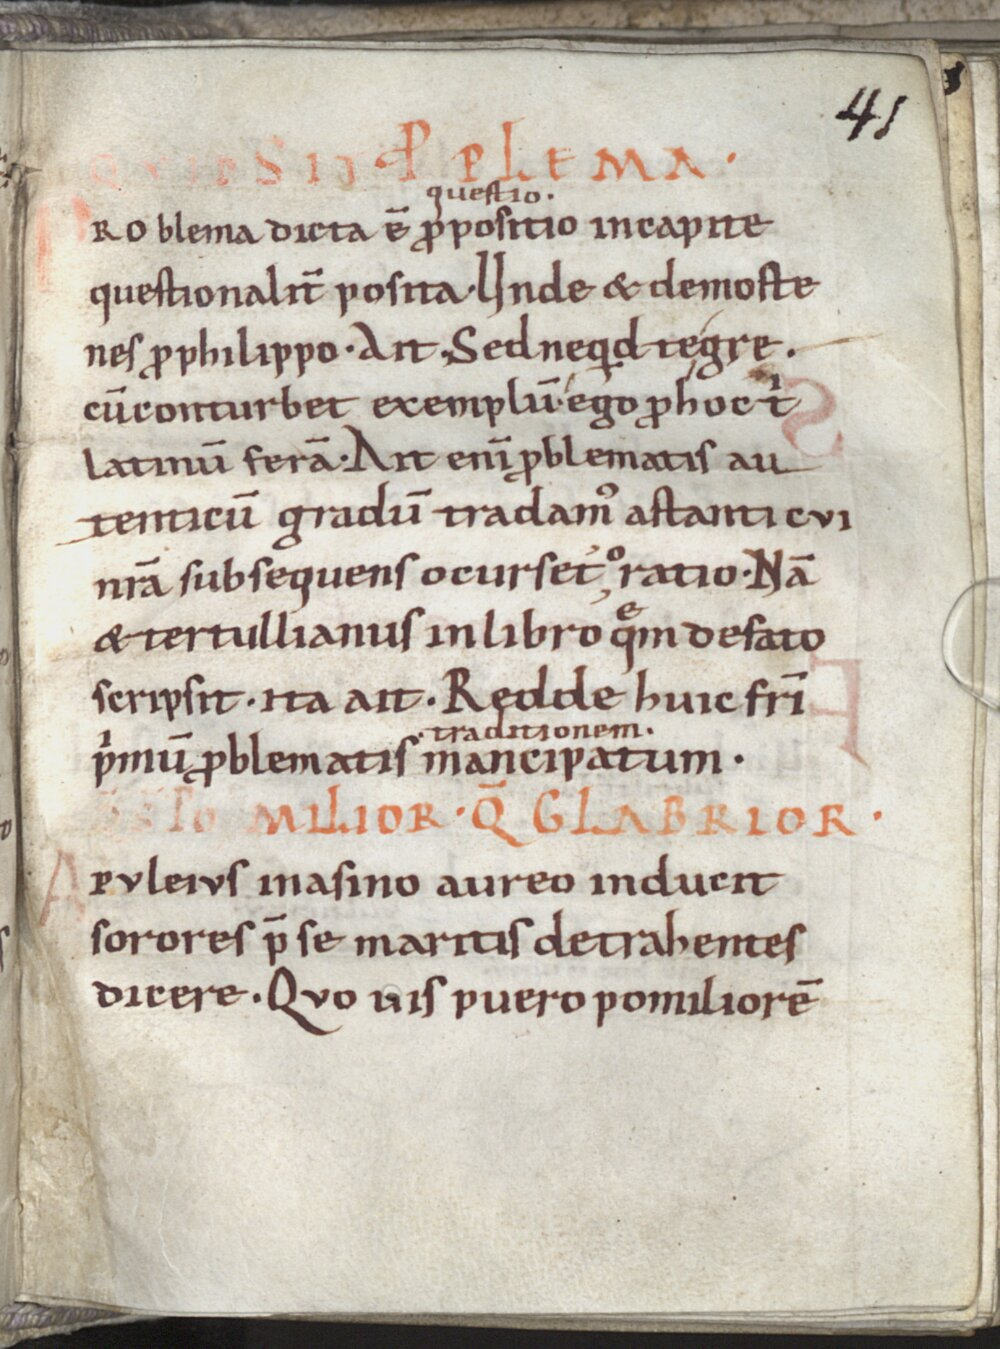 41
P PLEMA ·
questio ·
RO blema dicta ē ꝓpositio incapite
questionalit̄ posita · Unde & demoste
nes ꝓphilippo · Ait · Sed neqd tegre ·
cū conturbet exemplū ego ꝓhoc t̄
latinū ferā · Ait enī ꝓblematis au
tenticū gradū tradam᾽ astanti cui
nrā subsequens ocurset oratio · Nā
& tertullianus inlibro quem defato
scripsit · ita ait · Redde huic frī
traditionem ·
p̄mū ꝓblematis mancipatum ·
MILIOR · Q̄ GLABRIOR ·
A puleius inasino aureo inducit
sorores p̄ se maritis detrahentes
dicere · Quo uis puero pomiliorē